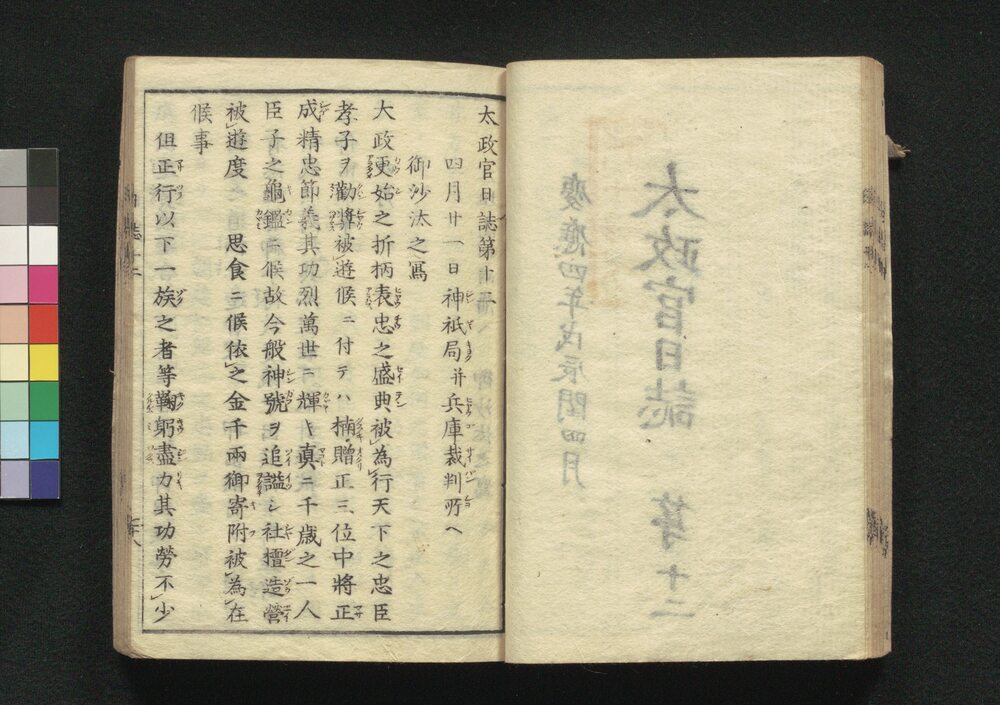 太政官日誌第十二
四月廿一日神祇局并兵庫裁判所へ
御沙汰之寫
大政更始之折柄表忠之盛典被為行天下之忠臣
孝子ヲ勸奬被遊候ニ付テハ楠贈正三位中將正
成精忠節義其功烈萬世ニ輝キ真ニ千歳之一人
臣子之龜鑑ニ候故今般神號ヲ追謚シ社壇造營
被遊度之思食ニ候依之金千兩御寄附被為在
候事
但正行以下一族之者等鞠躬盡力其功勞不少
太政官日誌 第十二
慶應四年戊辰閏四月